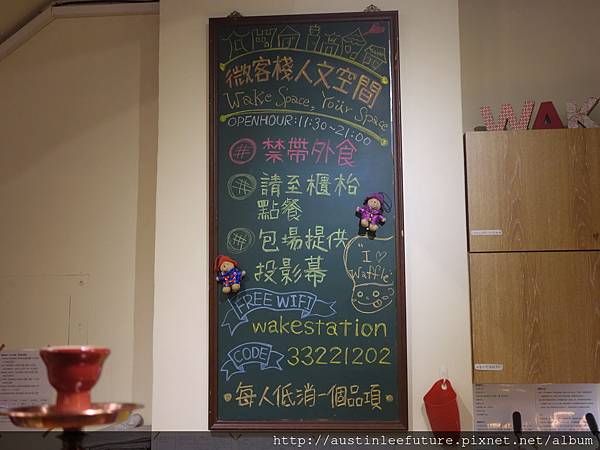 微客棧人文空間
Wake Space, Your Space
OPENHOUR:11:30~21:00
# 禁帶外食
# 請至櫃枱
點餐
# 包場提供
投影幕
I ♡
Waffle
FREE WIFI
wakestation
CODE 33221202
每人低消一個品項
WAK
http://austinleefuture.pixnet.net/album